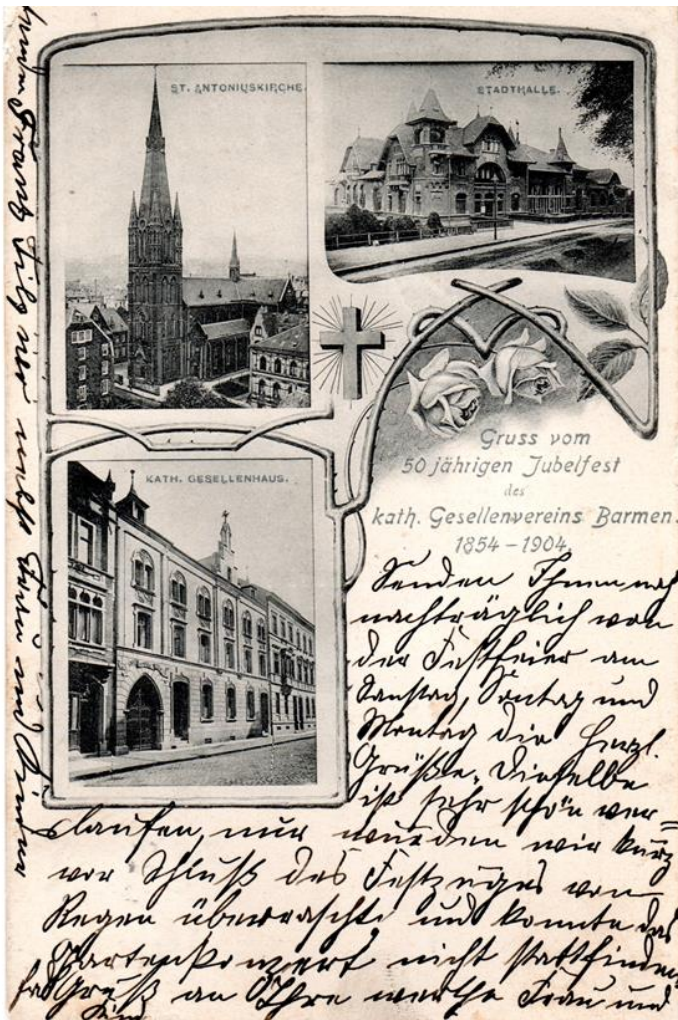 ST. ANTONIUSKIRCHE.
STADTHALLE.
KATH. GESELLENHAUS.
Gruss vom
50 jährigen Jubelfest
des
kath. Gesellenvereins Barmen.
1854 – 1904.
Senden Ihnen noch
nachträglich von
der Festfeier am
Samstag, Sontag und
Montag die herzl.
Grüße. Dieselbe
ist sehr schön ver=
laufen, nur wurden wir kurz
vor Schluß des Festzuges vom
Regen überrascht und konnte das
Gartenkonzert nicht stattfinden.
Gruß an Ihre werthe Frau und
Kind
Franz